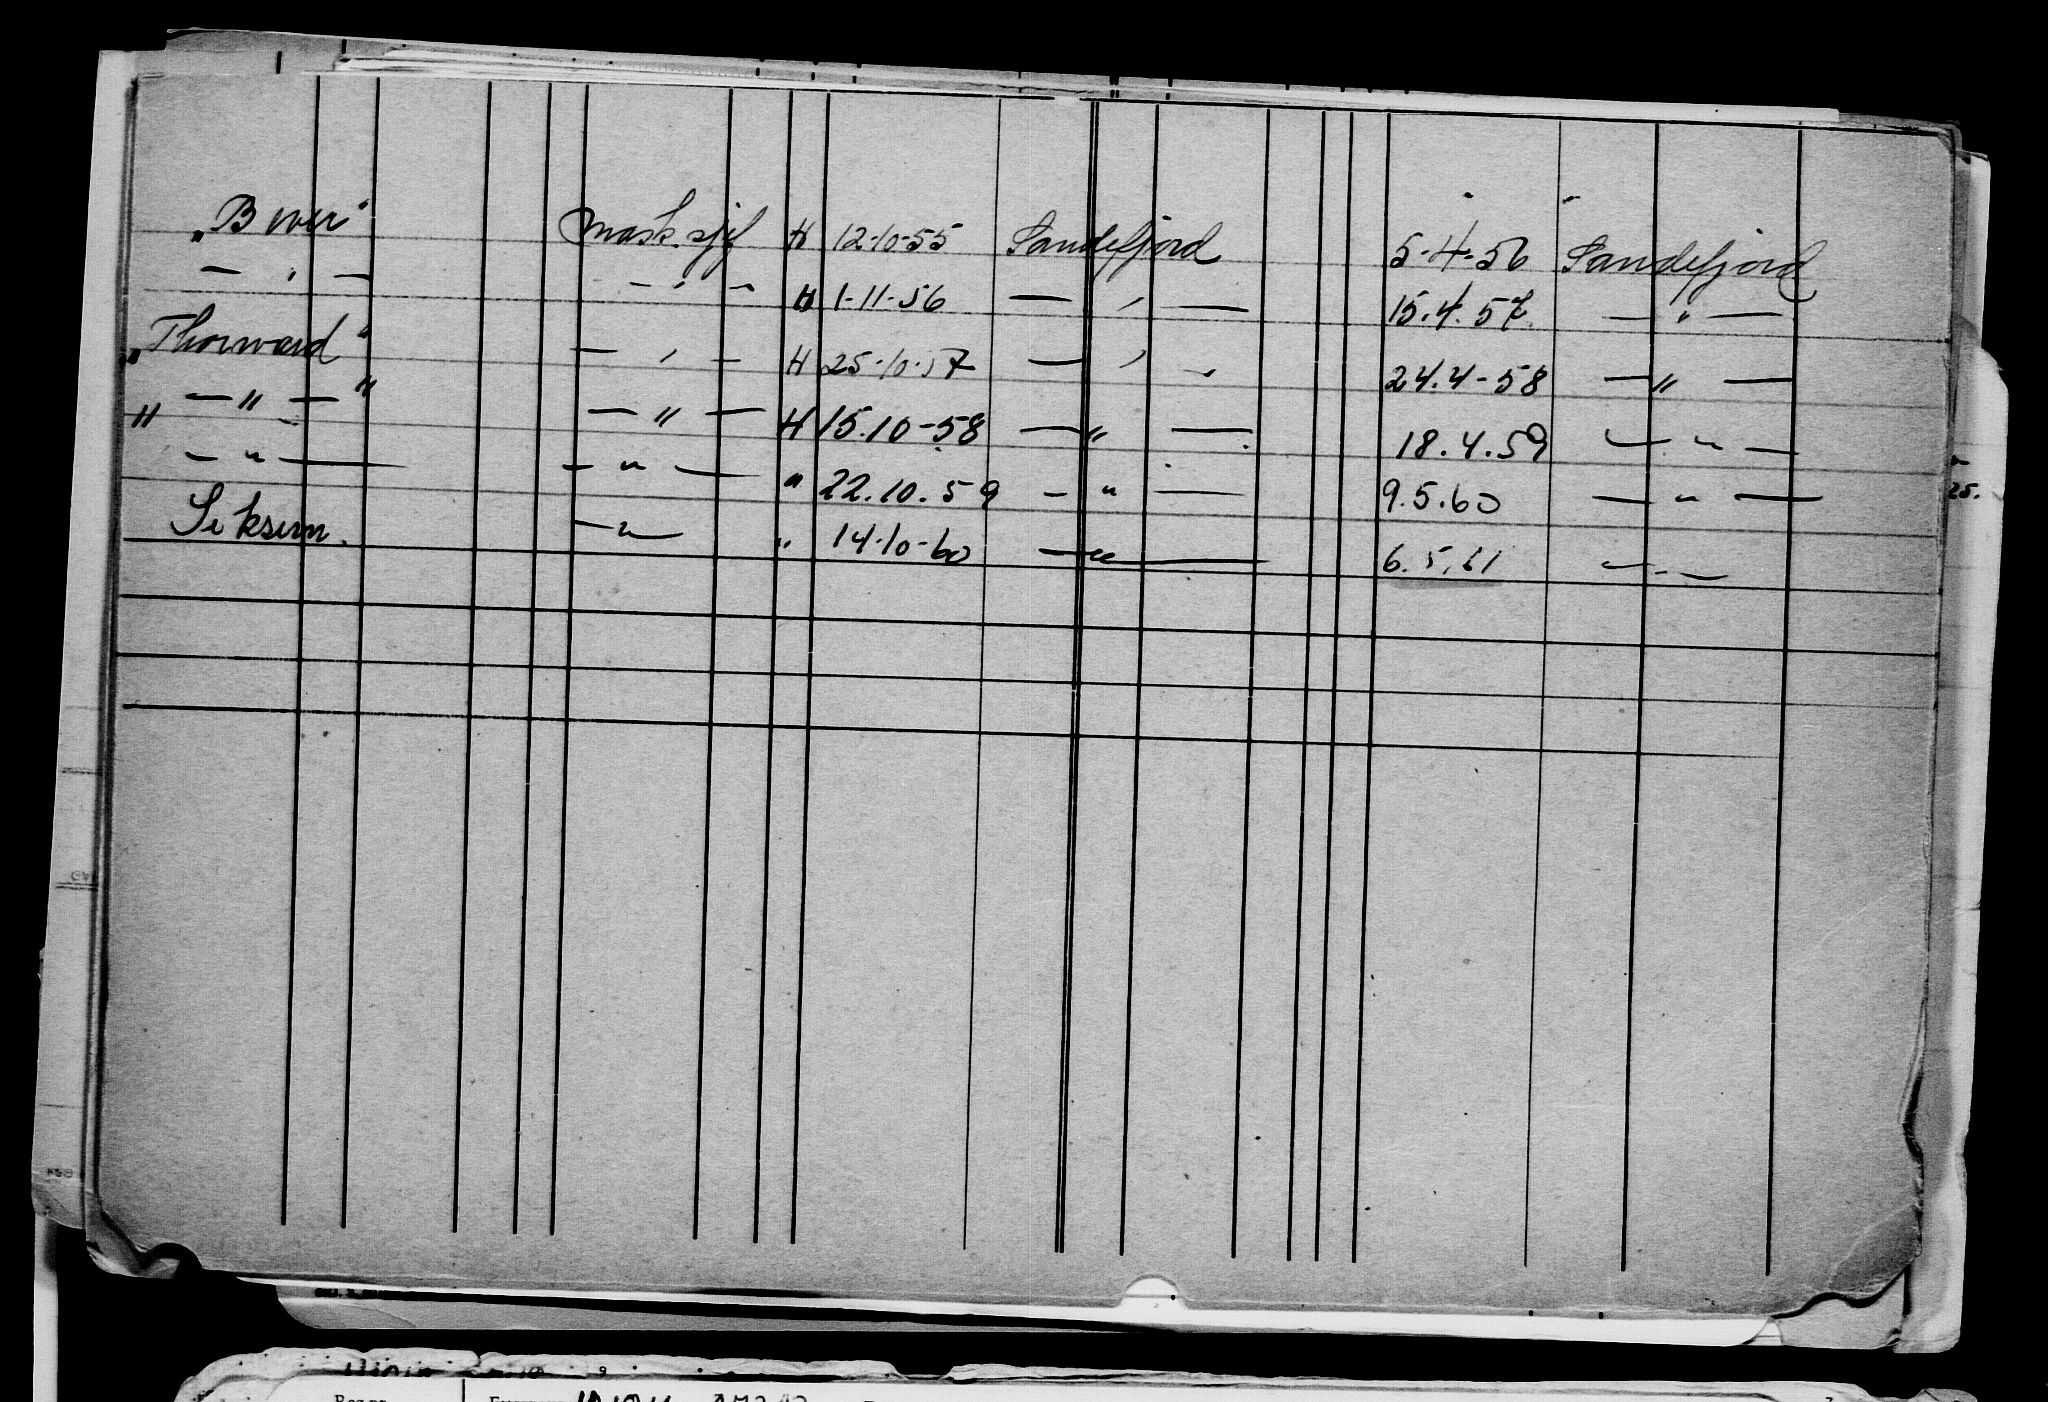 „Bever" mask.sjef H 12-10-55 Sandefjord 5-4-56 Sandefjord
— " — — " — H 1-11-56 — " — 15.4.57 — " —
„Thorvard" — " — H 25-10-57 — " — 24.4-58 — " —
" — " — " — " — H 15.10-58 — " — 18.4.59 — " —
— " — — " — " 22.10.59 — " — 9.5.60 — " —
— " — " 14-10-60 — " — 6.5.61 — " —
25.